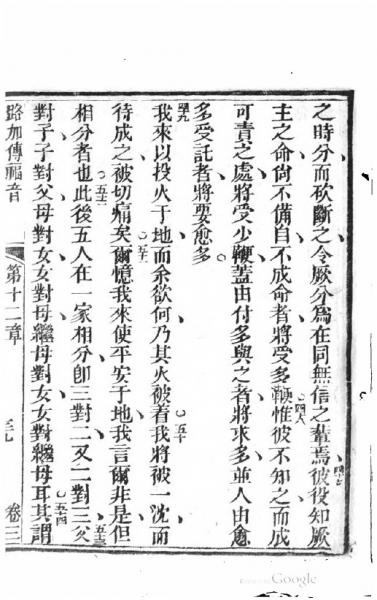 之時分而砍斷之令厥分爲在同無信之輩焉彼役知厥
四七
主之命尙不備自不成命者將受多鞭惟彼不知之而成
四八
可責之處將受少鞭蓋由付多與之者將求多並人由愈
多受託者將要愈多
四九
我來以投火于地而余欲何乃其火被着我將被一洗而
五十
待成之被切痛矣爾憶我來使平安于地我言爾非是但
五一
相分者也此後五人在一家相分卽三對二又二對三父
五二
五三
對子子對父母對女女對母繼母對女女對繼母耳其謂
五十四
路加傳福音
第十二章
三九
卷三
Google